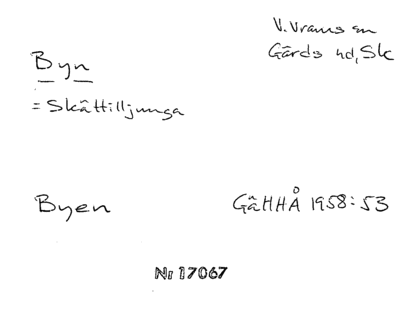 V. Vrams sn
Gärds hd, Sk
Byn
= Skättilljunga
Byen
GäHHÅ 1958:53
Nr 17067